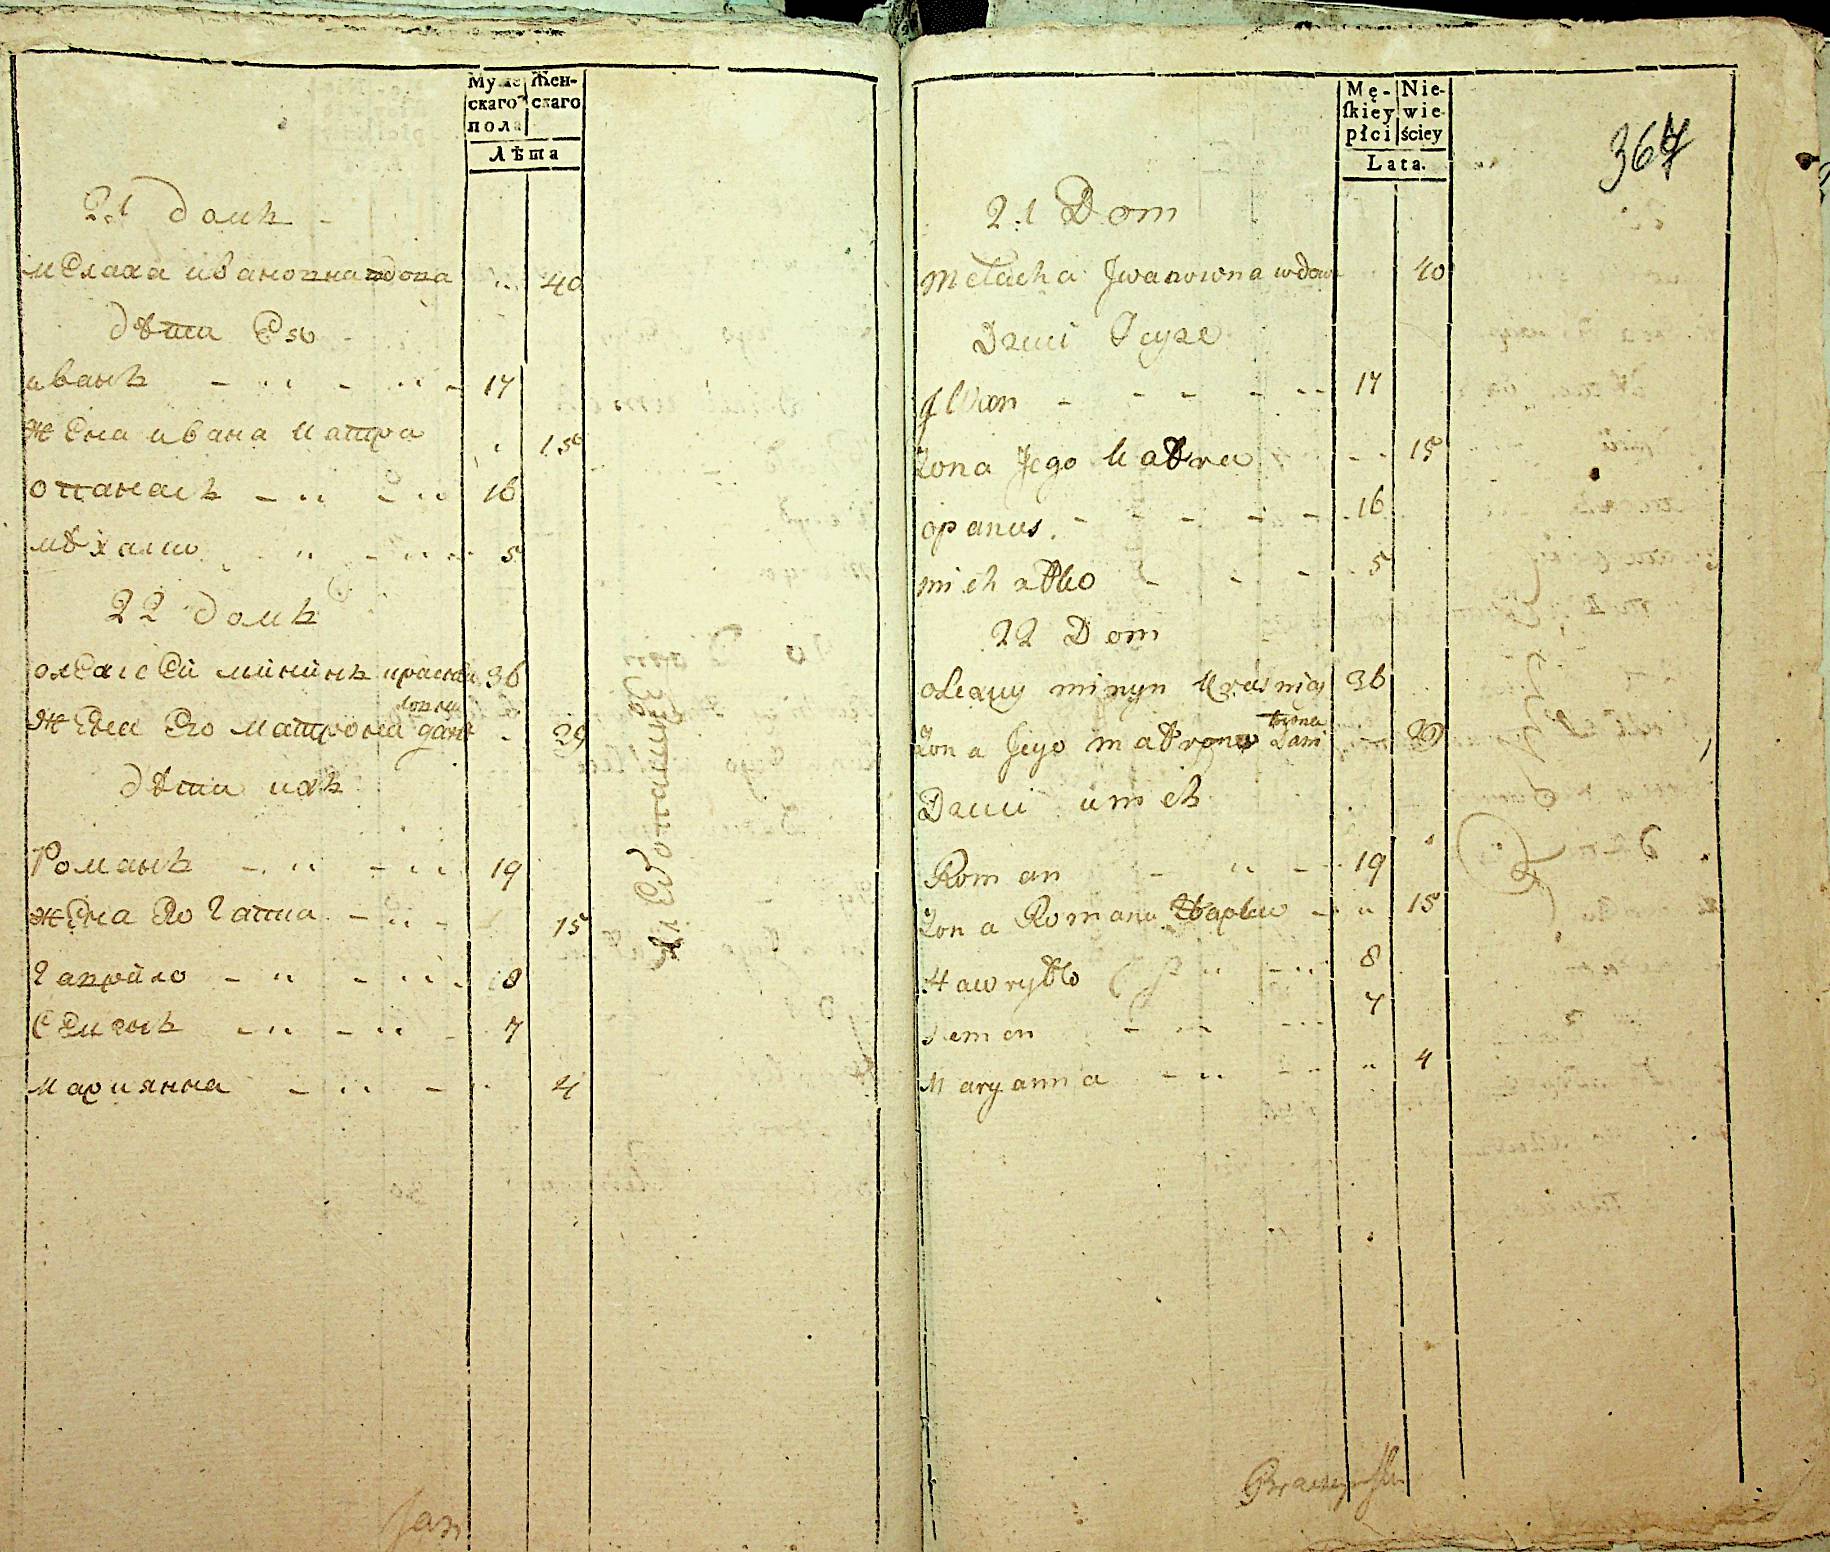 Муже Жен-
скаго скаго
пола
Лѣта
21 домъ
мелаха ивановна вдова 40
дѣти Ею
иванъ 17
жена ивана катра 15
опанасъ 16
мѣхалко 5
22 домъ
олеѯей мининъ 36
жена Его матрона 29
дѣти ихъ
Романъ 19
жена Его гапка 15
гаврило 8
семенъ 7
мариянна 4
Jan
Mę- Nie-
ſkiey wie-
płci ściey
Lata.
367
21 Dom
melacha Jwanowna wdowa 40
Dzieci Jeyze
Jwan 17
Zona Jego katra 15
opanas 16
michałko 5
22 Dom
olexiy minyn 36
Zona Jego matrona 29
Dzieci imich
Roman 19
Zona Romana hapka 15
Hawryło 8
Semen 7
Maryanna 4